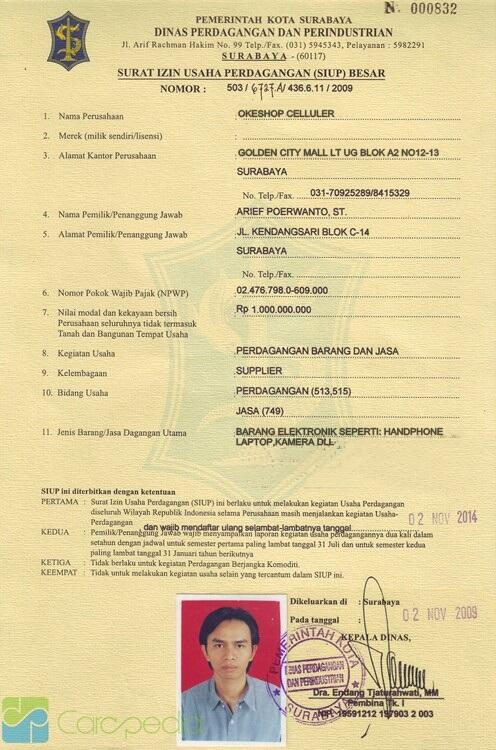 N. 000832
PEMERINTAH KOTA SURABAYA
DINAS PERDAGANGAN DAN PERINDUSTRIAN
Jl. Arif Rachman Hakim No. 99 Telp./Fax. (031) 5945343, Pelayanan : 5982291
SURABAYA - (60117)
SURAT IZIN USAHA PERDAGANGAN (SIUP) BESAR
NOMOR : 503 / 6727.A / 436.6.11 / 2009
1. Nama Perusahaan : OKESHOP CELLULER
2. Merek (milik sendiri/lisensi) :
3. Alamat Kantor Perusahaan : GOLDEN CITY MALL LT UG BLOK A2 NO12-13
SURABAYA
No. Telp./Fax. 031-70925289/8415329
4. Nama Pemilik/Penanggung Jawab : ARIEF POERWANTO, ST.
5. Alamat Pemilik/Penanggung Jawab : JL. KENDANGSARI BLOK C-14
SURABAYA
No. Telp./Fax.
6. Nomor Pokok Wajib Pajak (NPWP) : 02.476.798.0-609.000
7. Nilai modal dan kekayaan bersih : Rp 1.000.000.000
Perusahaan seluruhnya tidak termasuk
Tanah dan Bangunan Tempat Usaha
8. Kegiatan Usaha : PERDAGANGAN BARANG DAN JASA
9. Kelembagaan : SUPPLIER
10. Bidang Usaha : PERDAGANGAN (513,515)
JASA (749)
11. Jenis Barang/Jasa Dagangan Utama : BARANG ELEKTRONIK SEPERTI: HANDPHONE
LAPTOP,KAMERA DLL
SIUP ini diterbitkan dengan ketentuan
PERTAMA : Surat Izin Usaha Perdagangan (SIUP) ini berlaku untuk melakukan kegiatan Usaha Perdagangan
diseluruh Wilayah Republik Indonesia selama Perusahaan masih menjalankan kegiatan Usaha-
Perdagangan dan wajib mendaftar ulang selambat-lambatnya tanggal 02 NOV 2014
KEDUA : Pemilik/Penanggung Jawab wajib menyampaikan laporan kegiatan usaha perdagangannya dua kali dalam
setahun dengan jadwal untuk semester pertama paling lambat tanggal 31 Juli dan untuk semester kedua
paling lambat tanggal 31 Januari tahun berikutnya
KETIGA : Tidak berlaku untuk kegiatan Perdagangan Berjangka Komoditi.
KEEMPAT : Tidak untuk melakukan kegiatan usaha selain yang tercantum dalam SIUP ini.
Dikeluarkan di : Surabaya
Pada tanggal : 02 NOV 2009
KEPALA DINAS,
PEMERINTAH KOTA
DINAS PERDAGANGAN
DAN PERINDUSTRIAN
SURABAYA
Dra. Endang Tjaturahwati, MM
Pembina Tk. I
NIP. 19591212 197903 2 003
Carcpedia